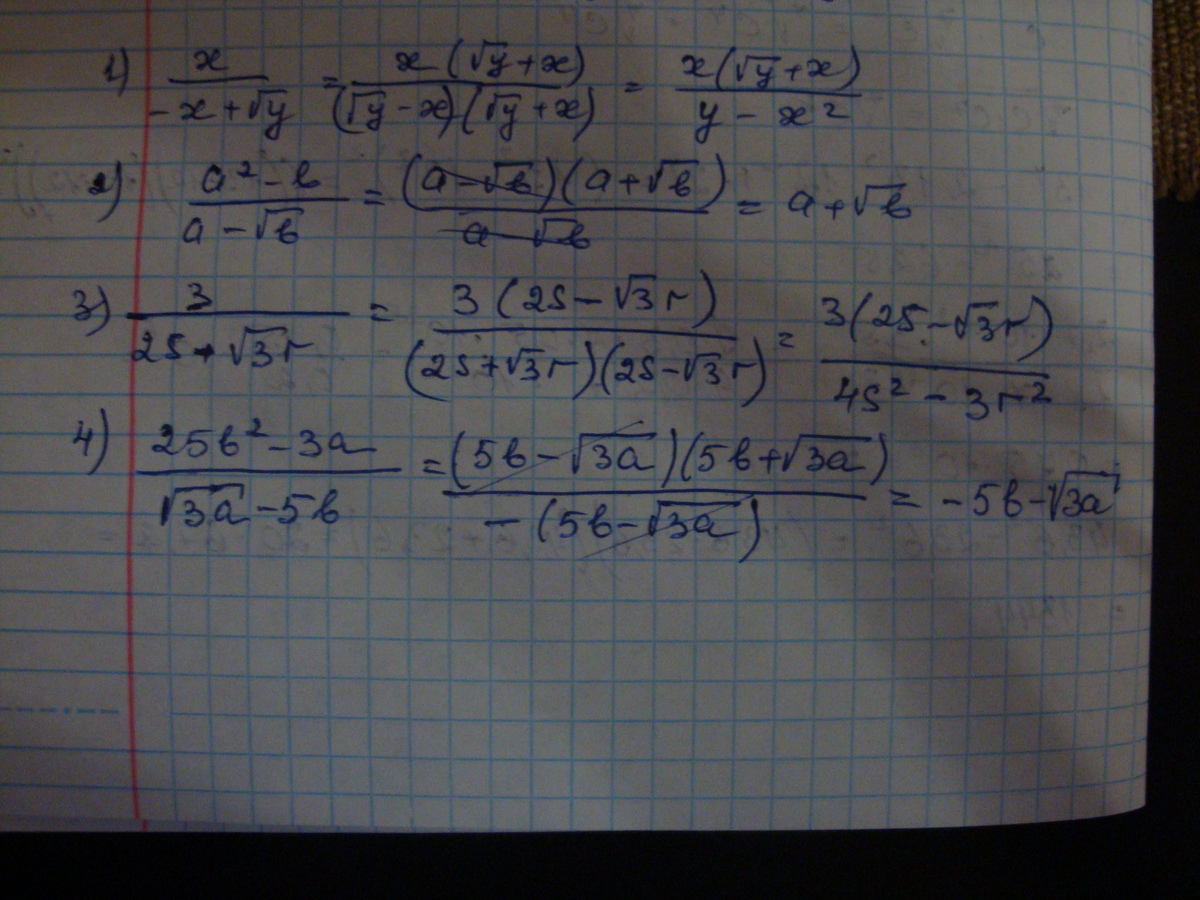 1) x/(-x+√y) = x(√y+x)/((√y-x)(√y+x)) = x(√y+x)/(y-x²)
2) (a²-b)/(a-√b) = (a-√b)(a+√b)/(a-√b) = a+√b
3) 3/(2s+√3r) = 3(2s-√3r)/((2s+√3r)(2s-√3r)) = 3(2s-√3r)/(4s²-3r²)
4) (25b²-3a)/(√3a-5b) = (5b-√3a)(5b+√3a)/(-(5b-√3a)) = -5b-√3a